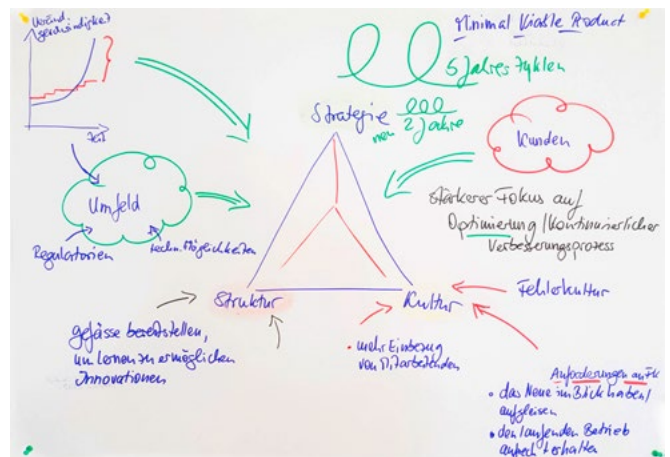 Veränd.
geschwindigkeit
Zeit
Minimal Viable Product
5 Jahres Zyklen
Strategie
neu 2 Jahre
Kunden
Umfeld
Regulatorien
techn. Möglichkeiten
stärkerer Fokus auf
Optimierung / Kontinuierlicher
Verbesserungsprozess
Struktur
Kultur
Fehlerkultur
gefässe bereitstellen,
um lernen zu ermöglichen
Innovationen
• mehr Einbezug
von Mitarbeitenden
Anforderungen an FK
• das Neue im Blick haben /
aufgleisen
• den laufenden Betrieb
aufrecht erhalten